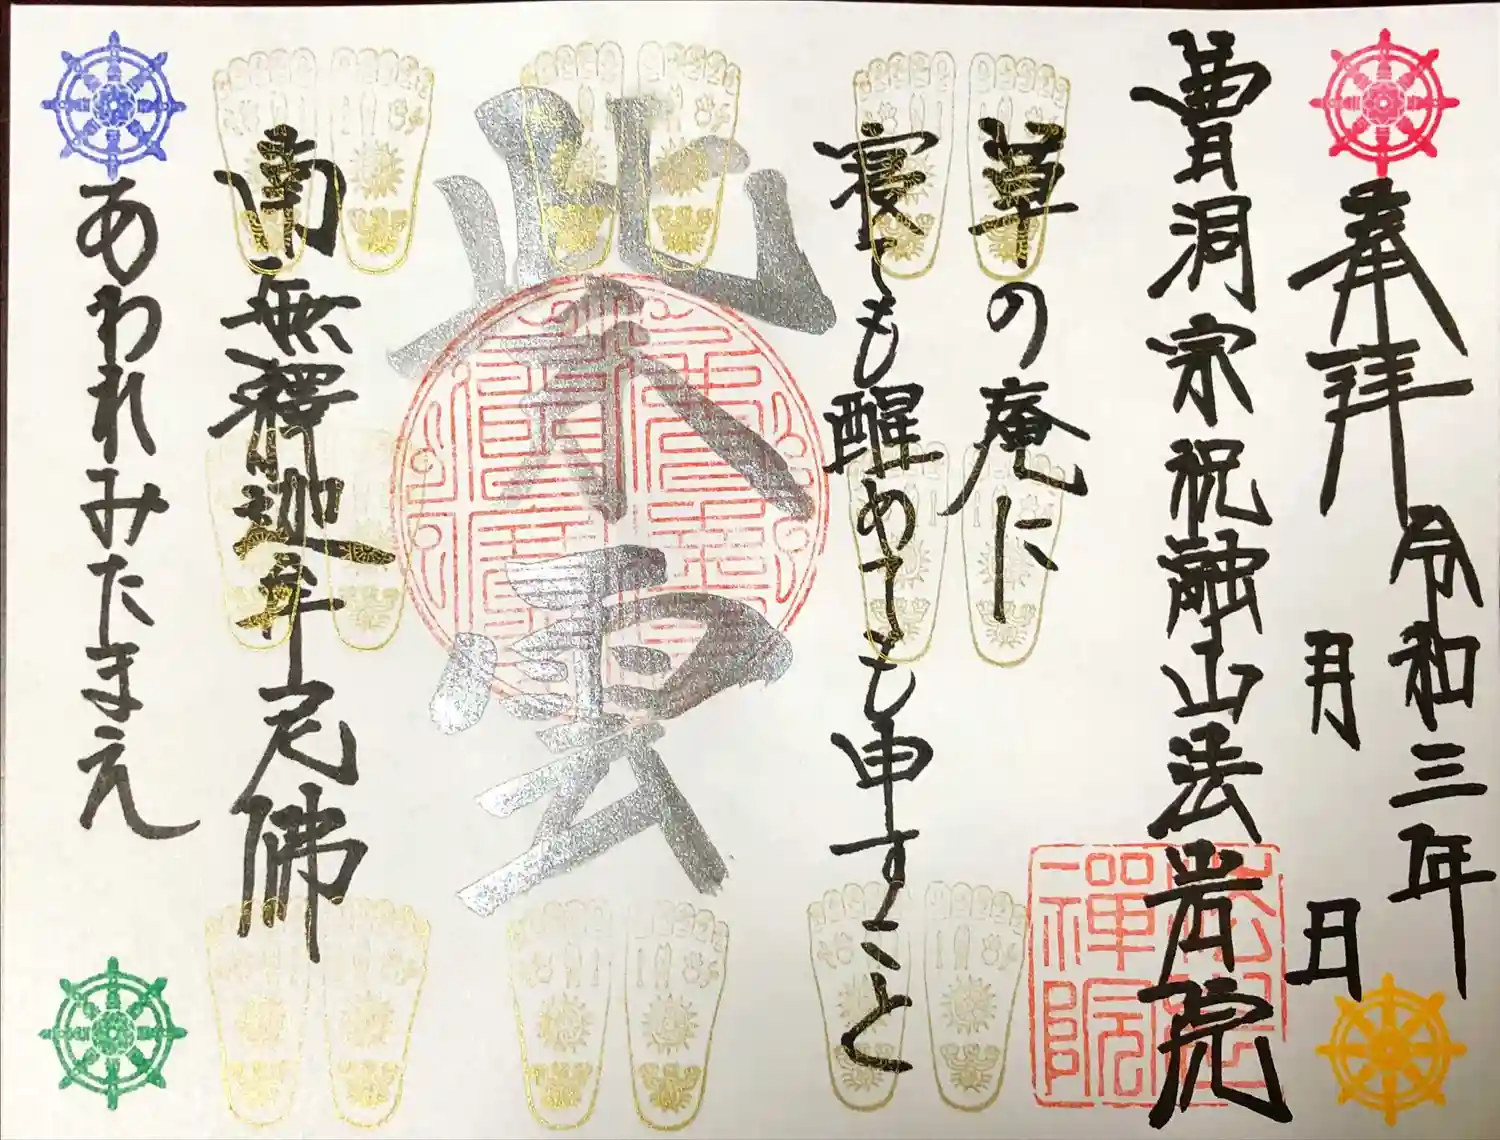 奉拝
令和三年
月 日
曹洞宗祝融山法岩院
草の庵に
寝ても醒めても申すこと
紫雲
南無釋迦牟尼佛
あわれみたまえ
禪院